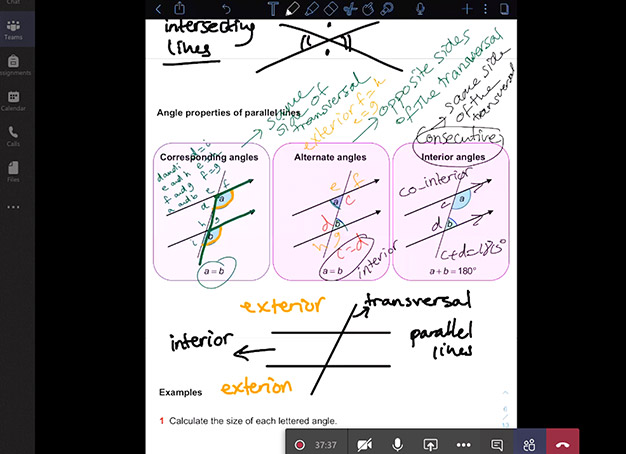 Chat
Teams
ssignments
Calendar
Calls
Files
intersecting
lines
Angle properties of parallel lines
same
side of
transversal
exterior f=h
e=g
opposite sides
of the transversal
same side
of the
transversal
Consecutive
Corresponding angles
Alternate angles
Interior angles
d=i
e and h
f and g
f=g
a and b
e
f
d
a
h
g
b
i
a = b
e
f
a
c
d
b
h
g
c=d
a = b
interior
co-interior
c
a
d
b
c+d=180°
a + b = 180°
exterior
transversal
interior
parallel
lines
exterion
Examples
1 Calculate the size of each lettered angle.
6
/
13
37:37